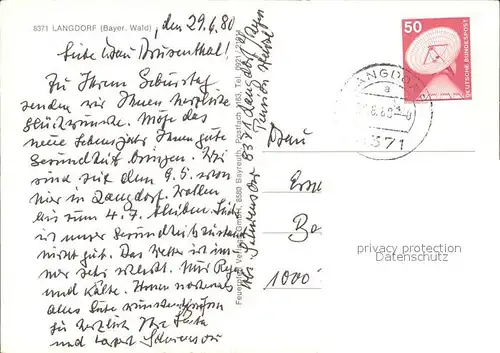 8371 LANGDORF (Bayer. Wald), den 29.6.80
Liebe Frau Brusenthal!
Zu Ihrem Geburtstag
senden wir Ihnen herzliche
Glückwünsche. Möge das
neue Lebensjahr Ihnen gute
Gesundheit bringen. Wir
sind seit dem 9.5. schon
hier in Langdorf. Wollen
bis zum 4.7. bleiben.
ist unser Gesundheitszustand
nicht gut. Das Wetter ist im-
mer sehr schlecht. Nur Regen
und Kälte. Ihnen nochmals
alles Gute wünschen
Sie herzlich Ihre
und
Bayreuth, Postfach
8371 Langdorf
Pension
50
DEUTSCHE BUNDESPOST
LANGDORF
a
8371
Frau
Erne
Bo
1000
privacy protection
Datenschutz